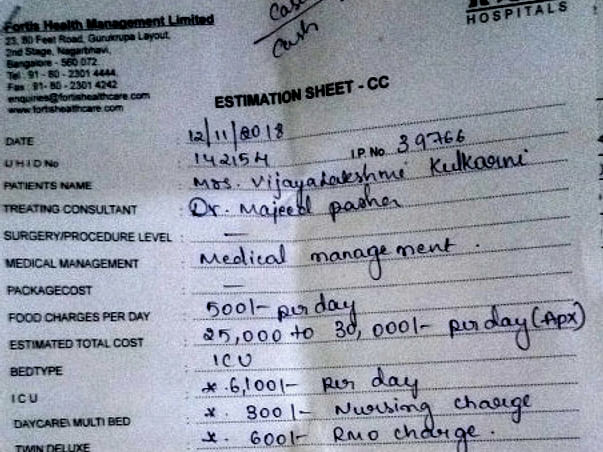 Fortis Health Management Limited
23, 80 Feet Road, Gurukrupa Layout,
2nd Stage, Nagarbhavi,
Bangalore - 560 072.
Tel : 91 - 80 - 2301 4444,
Fax : 91- 80 - 2301 4242
enquiries@fortishealthcare.com
www.fortishealthcare.com
Cash
HOSPITALS
ESTIMATION SHEET - CC
DATE : 12/11/2018
UHID No : 142154 I.P. No. 39766
PATIENTS NAME : Mrs. Vijayalakshmi Kulkarni
TREATING CONSULTANT : Dr. Majeed pasha
SURGERY/PROCEDURE LEVEL : —
MEDICAL MANAGEMENT : Medical management.
PACKAGECOST : —
FOOD CHARGES PER DAY : 500/- per day
ESTIMATED TOTAL COST : 25,000 to 30,000/- per day (Apx)
BEDTYPE : ICU
ICU : *. 6,100/- per day
DAYCARE\ MULTI BED : *. 300/- Nursing charge
TWIN DELUXE : *. 600/- RMO charge.